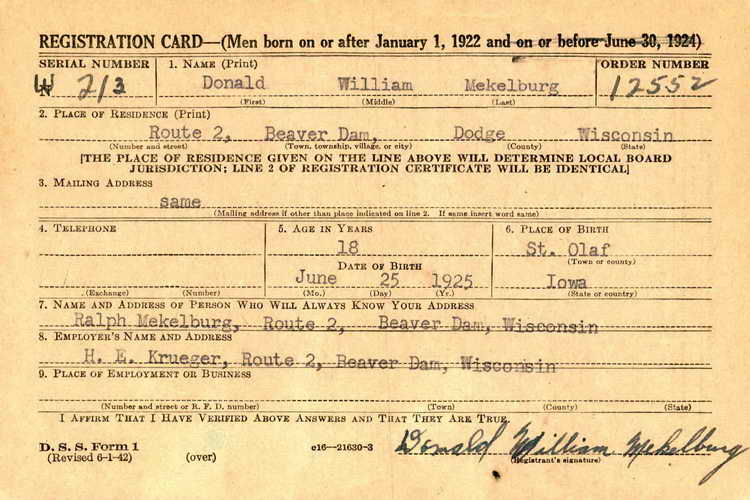 REGISTRATION CARD—(Men born on or after January 1, 1922 and on or before June 30, 1924)
SERIAL NUMBER 1. NAME (Print) ORDER NUMBER
W 213 Donald William Mekelburg 12552
N
(First) (Middle) (Last)
2. PLACE OF RESIDENCE (Print)
Route 2, Beaver Dam, Dodge Wisconsin
(Number and street) (Town, township, village, or city) (County) (State)
[THE PLACE OF RESIDENCE GIVEN ON THE LINE ABOVE WILL DETERMINE LOCAL BOARD
JURISDICTION; LINE 2 OF REGISTRATION CERTIFICATE WILL BE IDENTICAL]
3. MAILING ADDRESS
same
(Mailing address if other than place indicated on line 2. If same insert word same)
4. TELEPHONE 5. AGE IN YEARS 6. PLACE OF BIRTH
18 St. Olaf
DATE OF BIRTH (Town or county)
June 25 1925 Iowa
(Exchange) (Number) (Mo.) (Day) (Yr.) (State or country)
7. NAME AND ADDRESS OF PERSON WHO WILL ALWAYS KNOW YOUR ADDRESS
Ralph Mekelburg, Route 2, Beaver Dam, Wisconsin
8. EMPLOYER'S NAME AND ADDRESS
H. E. Krueger, Route 2, Beaver Dam, Wisconsin
9. PLACE OF EMPLOYMENT OR BUSINESS
(Number and street or R. F. D. number) (Town) (County) (State)
I AFFIRM THAT I HAVE VERIFIED ABOVE ANSWERS AND THAT THEY ARE TRUE.
D. S. S. Form 1 c16—21630-3 Donald William Mekelburg
(Revised 6-1-42) (over) (Registrant's signature)